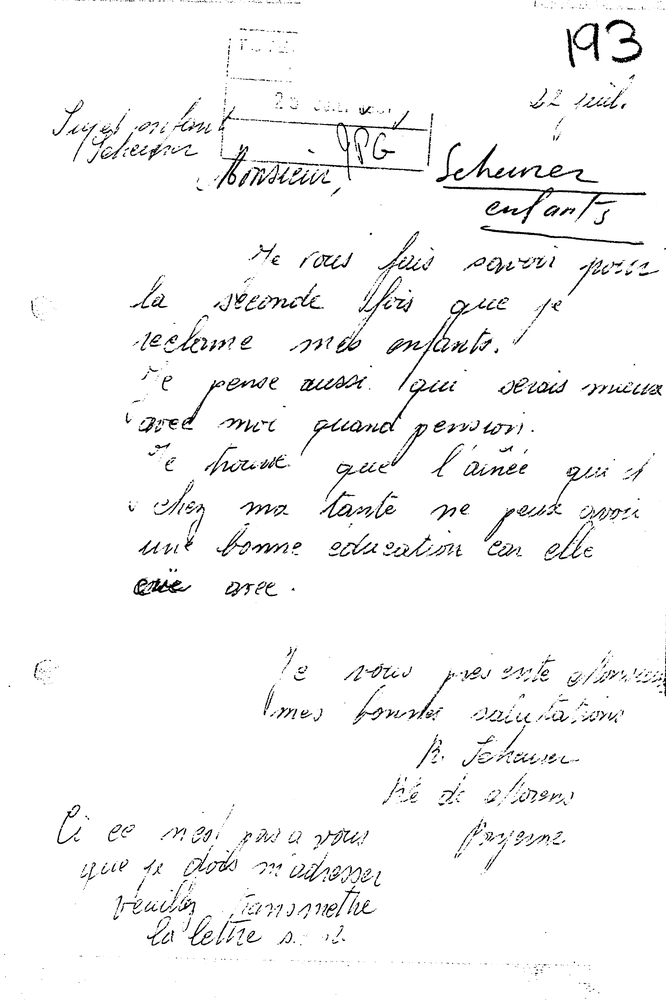 193
22 juil.
Sujet enfant
Scheurer
JPG
Monsieur,
Scheurer
enfants
Je vous fais savoir pour
la seconde fois que je
réclame mes enfants.
Je pense aussi qui serais mieux
avec moi quand pension.
Je trouve que l'ainée qui et
chez ma tante ne peux avoir
une bonne éducation car elle
crie avec.
Je vous présente Monsieur
mes bonnes salutations
R. Scheurer
Rte de Morens
Payerne
Ci ce n'est pas a vous
que je dois m'adresser
veuillez transmethre
la lettre